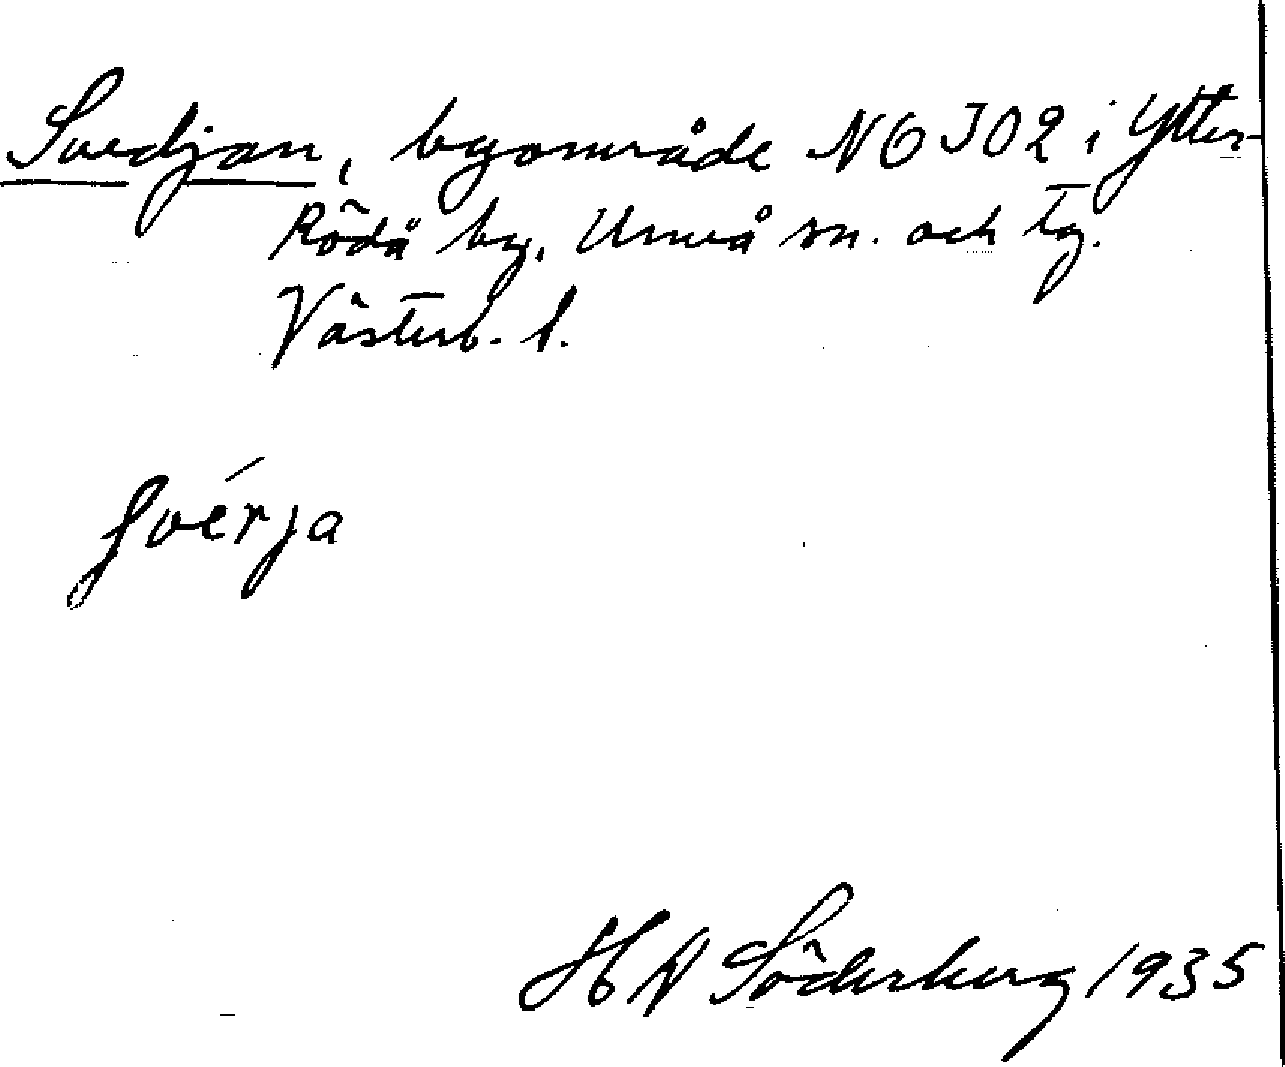 Svedjan, byområde N6JO2 i Ytter-
Rödå by, Umeå sn. och tg.
Västerb. l.
svérja
H N Söderberg 1935